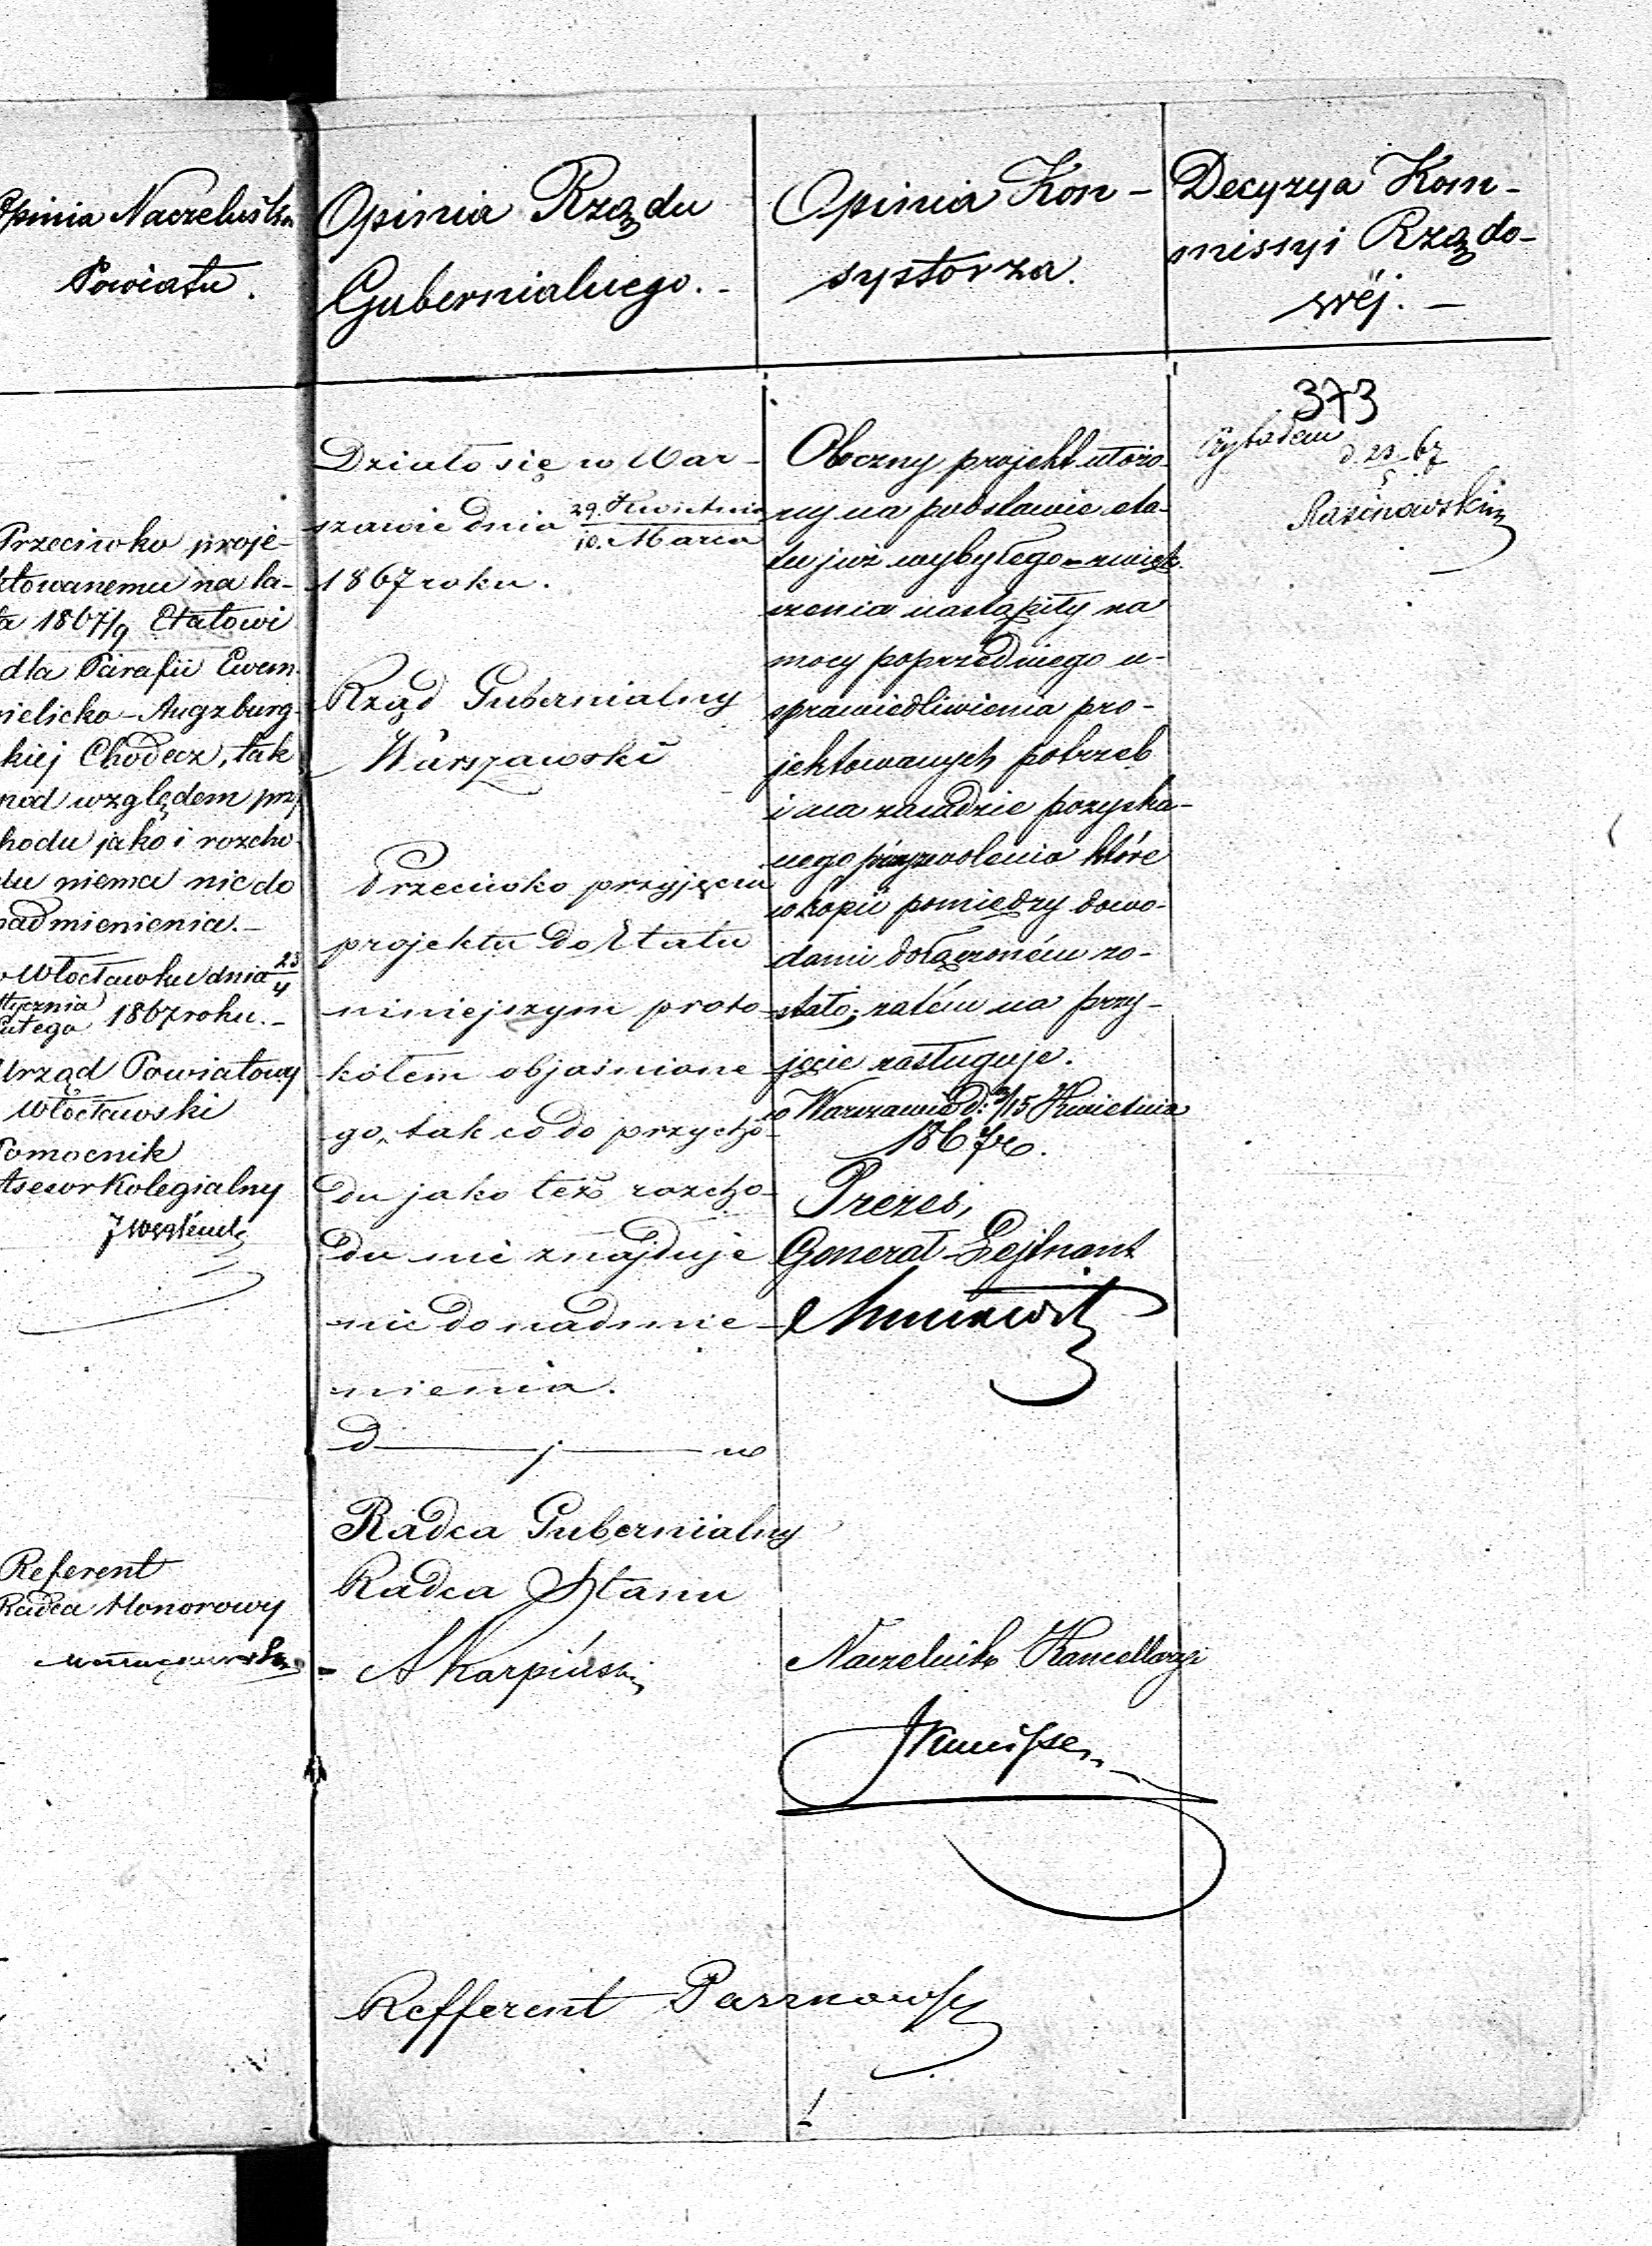 Opinia Naczelnika
Powiatu.
Przeciwko proje-
ktowanemu na la-
ta 1867/9 Etatowi
dla Parafii Ewan-
gielicko-Augzburg-
skiej Chodecz, tak
pod względem przy-
chodu jako i rozcho-
du niema nic do
nadmienienia.-
w Włocławku dnia 23/4
Stycznia/Lutego 1867 roku.-
Urząd Powiatowy
Włocławski
Pomocnik
Asesor Kolegialny
Referent
Radca Honorowy
Opinia Rządu
Gubernialnego.-
Działo się w War-
szawie dnia 29. Kwietnia/10. Marca
1867 roku.
Rząd Gubernialny
Warszawski
Przeciwko przyjęciu
projektu do Etatu
niniejszym proto-
kółem objaśnione-
go, tak co do przycho-
du jako też rozcho-
du nie znajduje
nic do nadmie-
nienia.
d——j——w
Radca Gubernialny
Radca Stanu
A Karpiński
Refferent
Opinia Kon-
systorza.
Oboczny projekt ułożo-
ny na podstawie eta-
tu już wybyłego - zwięk-
szenia nastąpiły na
mocy poprzedniego u-
sprawiedliwienia pro-
jektowanych potrzeb
i na zasadzie pozyska-
nego przyzwolenia które
w kopii pomiędzy dowo-
dami dołączoném zo-
stało; zatém na przy-
jęcie zasługuje.
w Warszawie d: 3/15 Kwietnia
1867 r.
Prezes,
Generał-Lejtnant
Naczelnik Kancellaryi
Decyzya Kom-
missyi Rządo-
wéj.-
373
Czytałem
d. 23/5 67